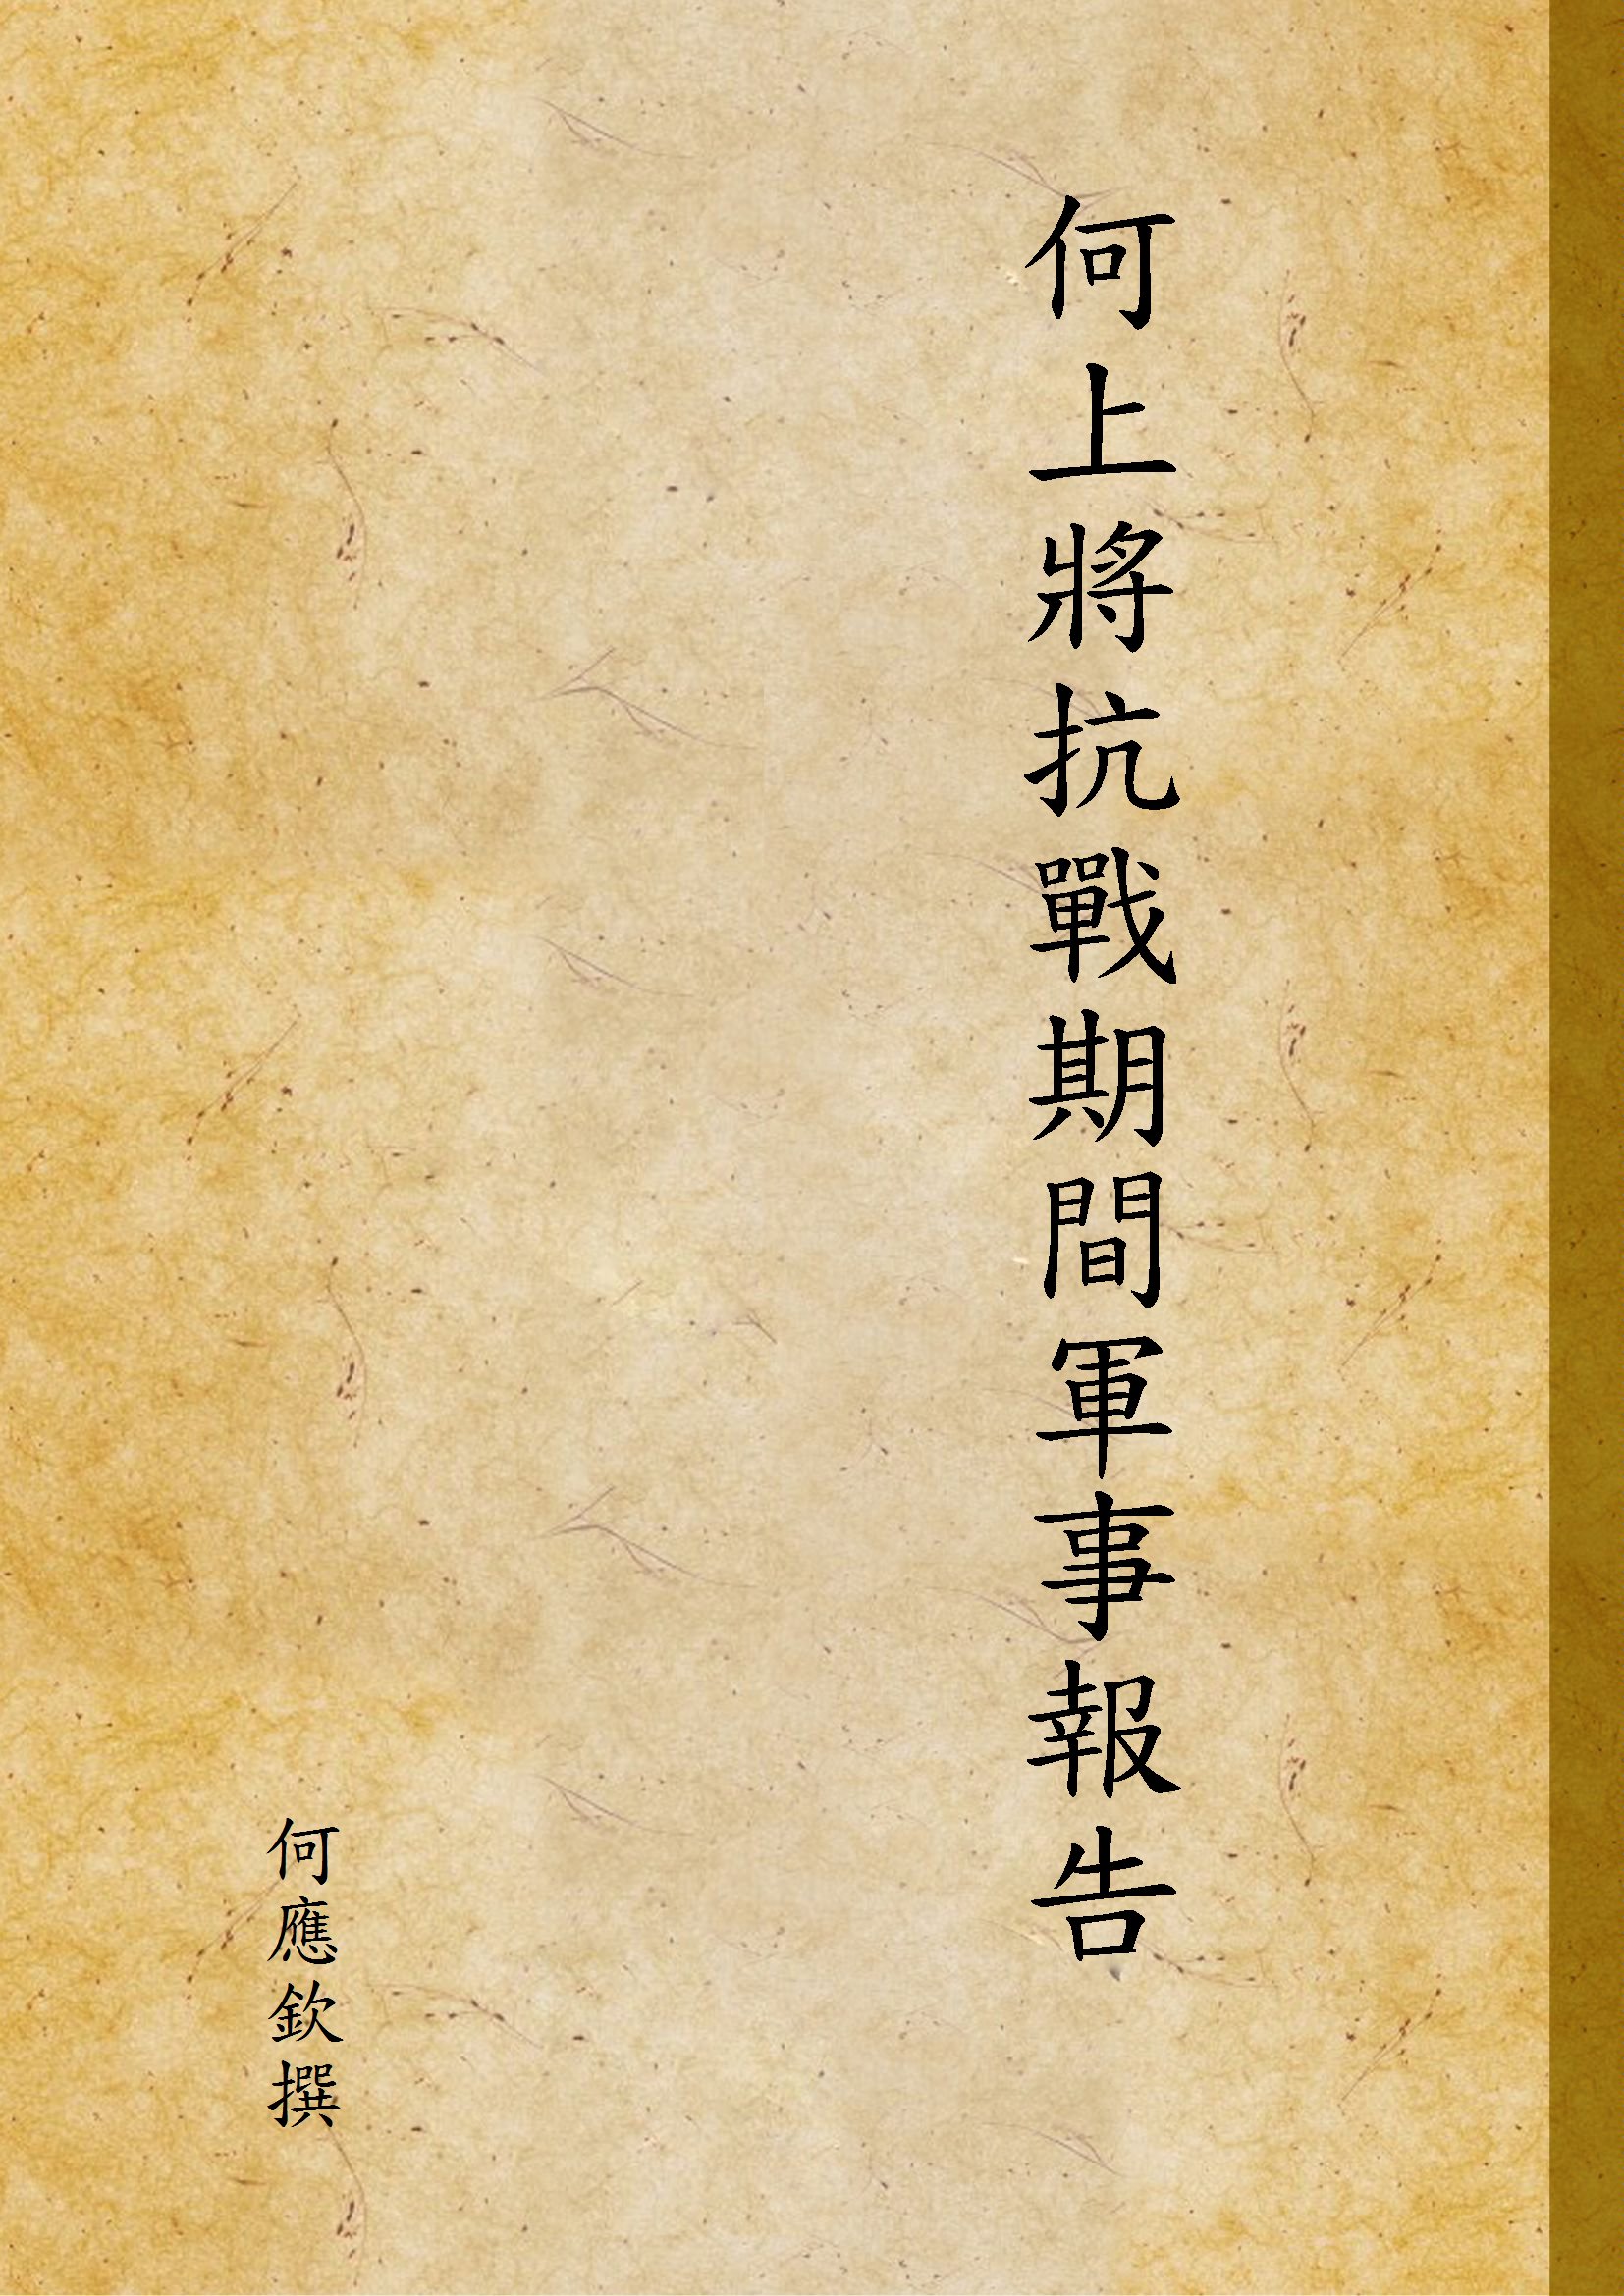 何上將抗戰期間軍事報告
何應欽撰